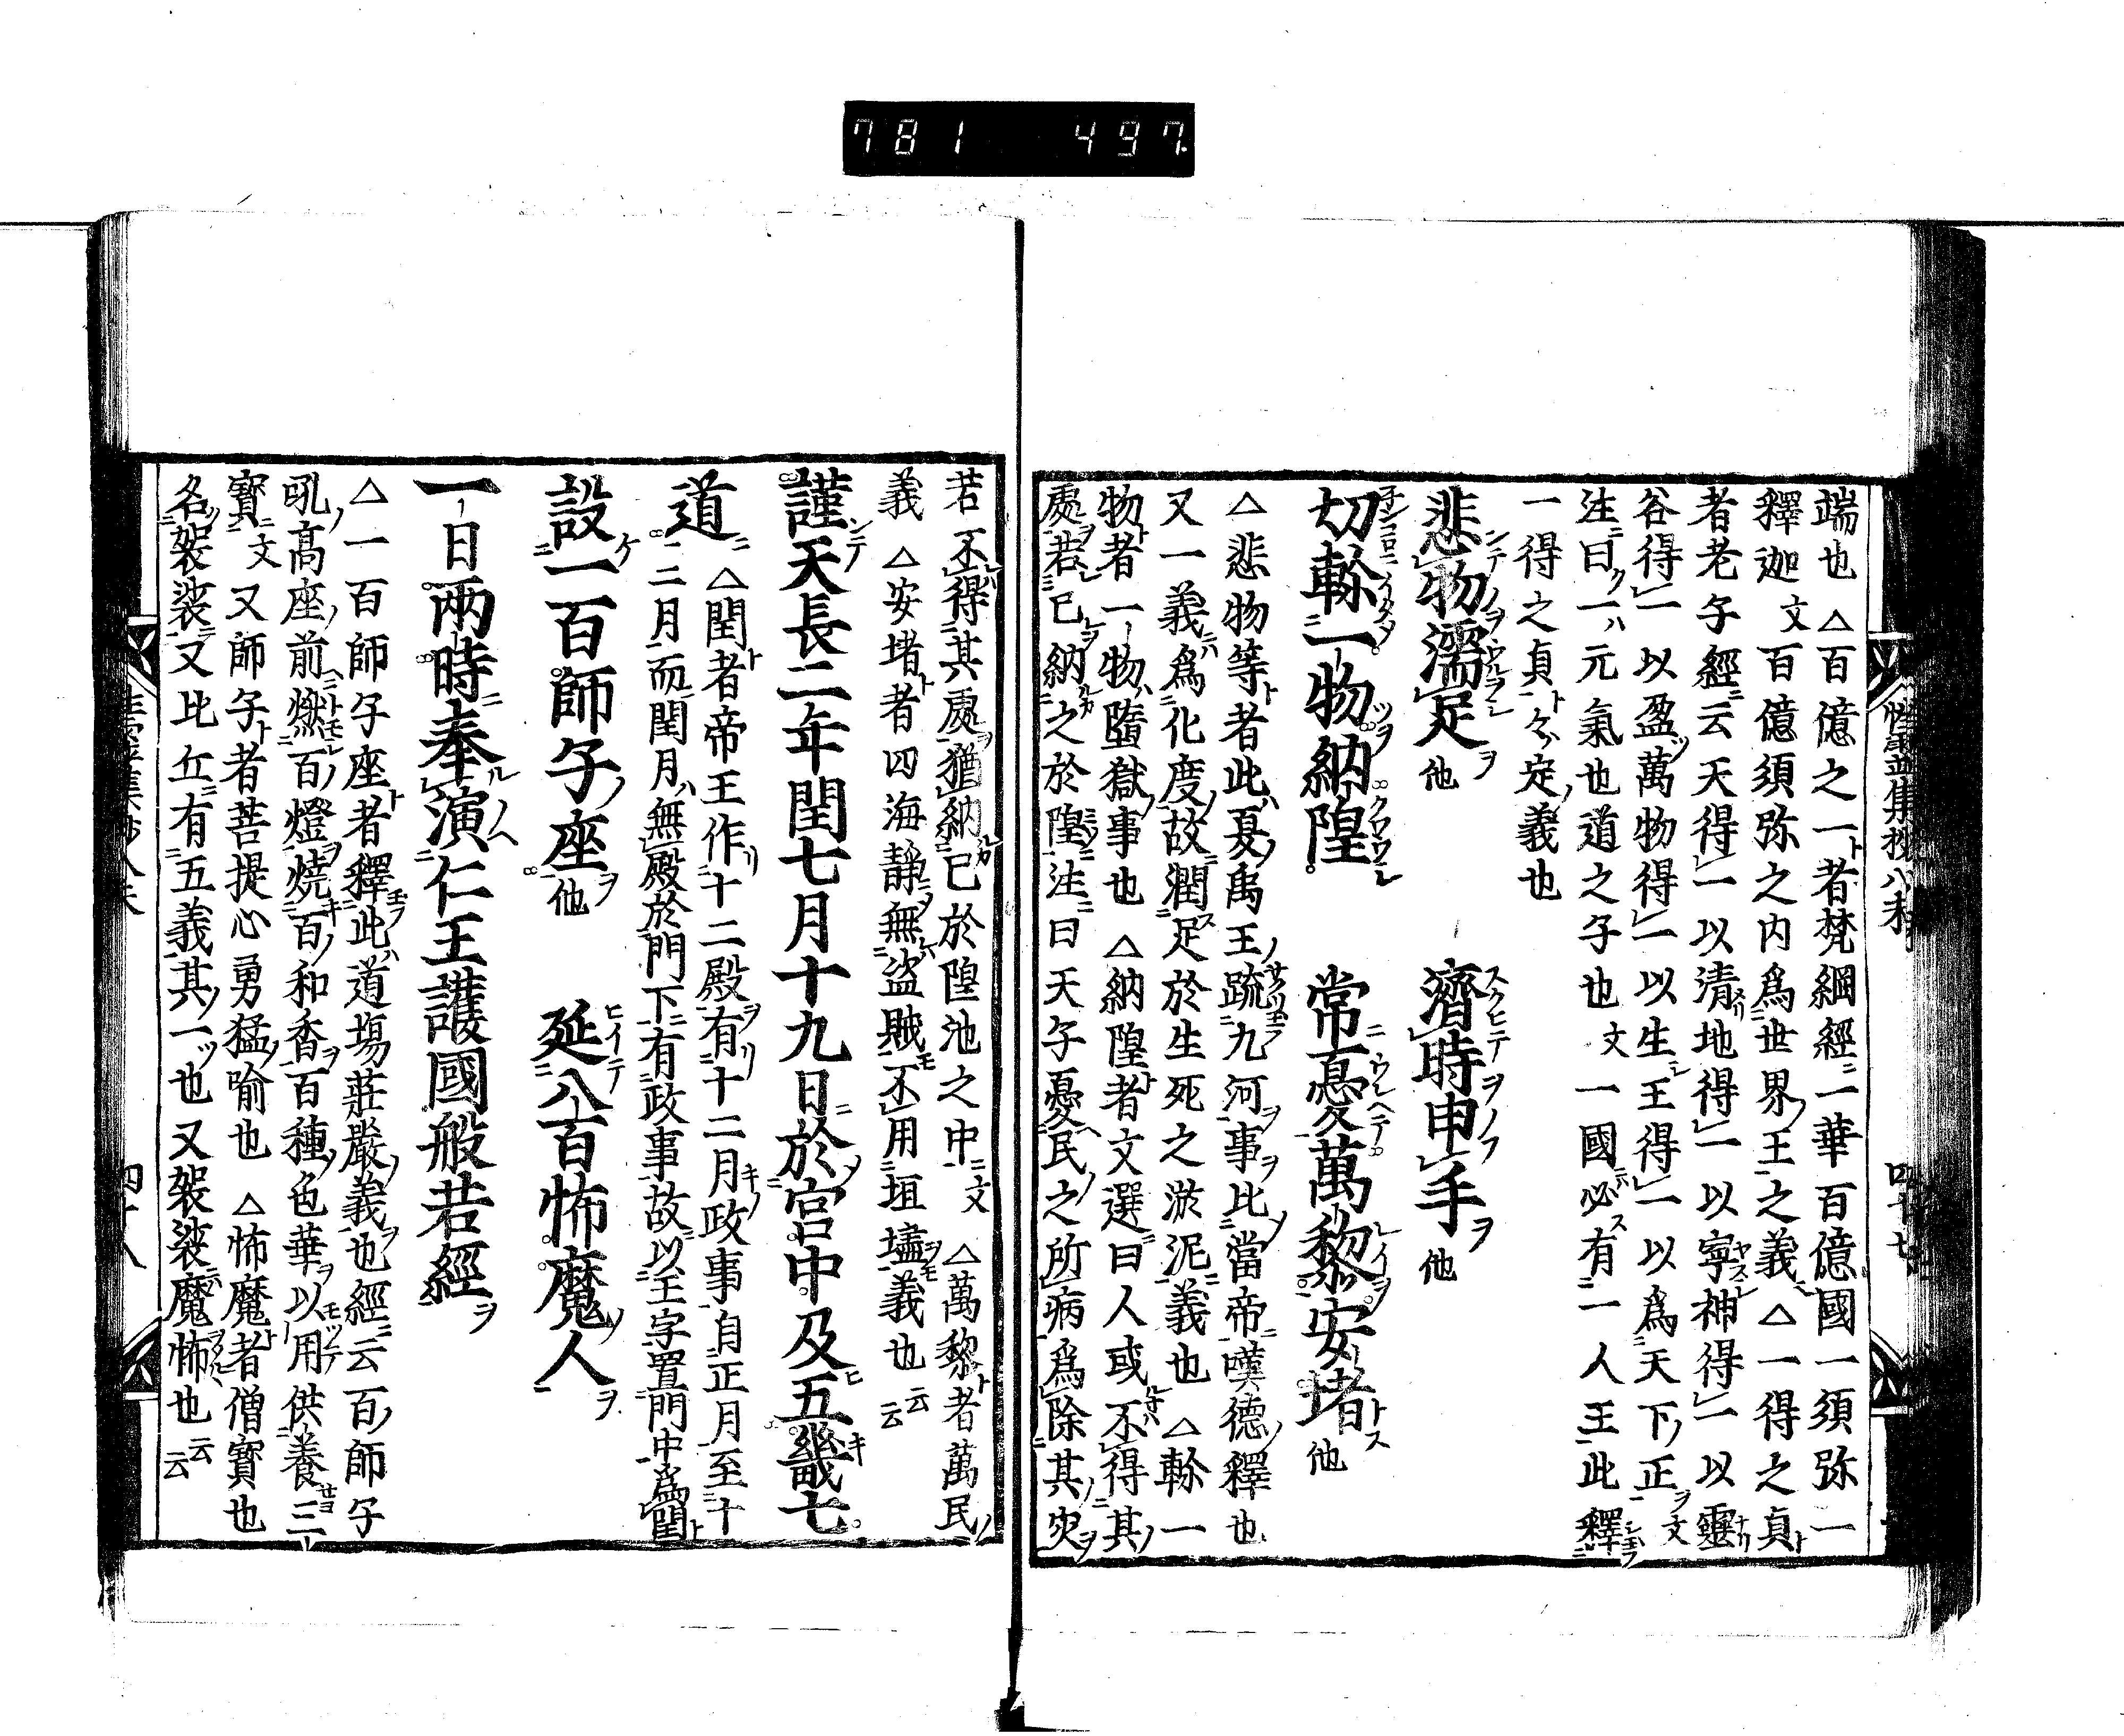 781 497
端也 △百億之一者梵綱經一華百億國一須弥一
釋迦文百億須弥之内爲世界王之義 △一得之貞
者老子經云天得一以清地得一以寧神得一以靈
谷得一以盈萬物得一以生王得一以爲天下正文
注曰一元氣也道之子也文一國必有一人王此釋
一得之貞々定義也
悲物濡足他 濟時申手他
切軫一物納隍 常憂萬黎安堵他
△悲物等者此夏禹王䟽九河事比當帝嘆德釋也
又一義爲化度故潤足於生死之淤泥義也 △軫一
物者一物墮獄事也 △納隍者文選曰人或不得其
處若已納之於隍注曰天子憂民之所病爲除其灾
四十七
若不得其處猶納已於隍池之中文 △萬黎者萬民
義 △安堵者四海靜無盜賊不用垣墻義也云云
謹天長二年閏七月十九日於宮中及五畿七
道 △閏者帝王作十二殿有十二月政事自正月至十
二月而閏月無殿於門下有政事故以王字置門中爲閏
設一百師子座他 延八百怖魔人
一日兩時奉演仁王護國般若經
△一百師子座者釋此道場莊嚴義也經云百師子
吼高座前燃百燈燒百和香百種色華以用供養三
寳文又師子者菩提心勇猛喻也 △怖魔者僧寳也
名袈裟又比丘有五義其一也又袈裟魔怖也云云